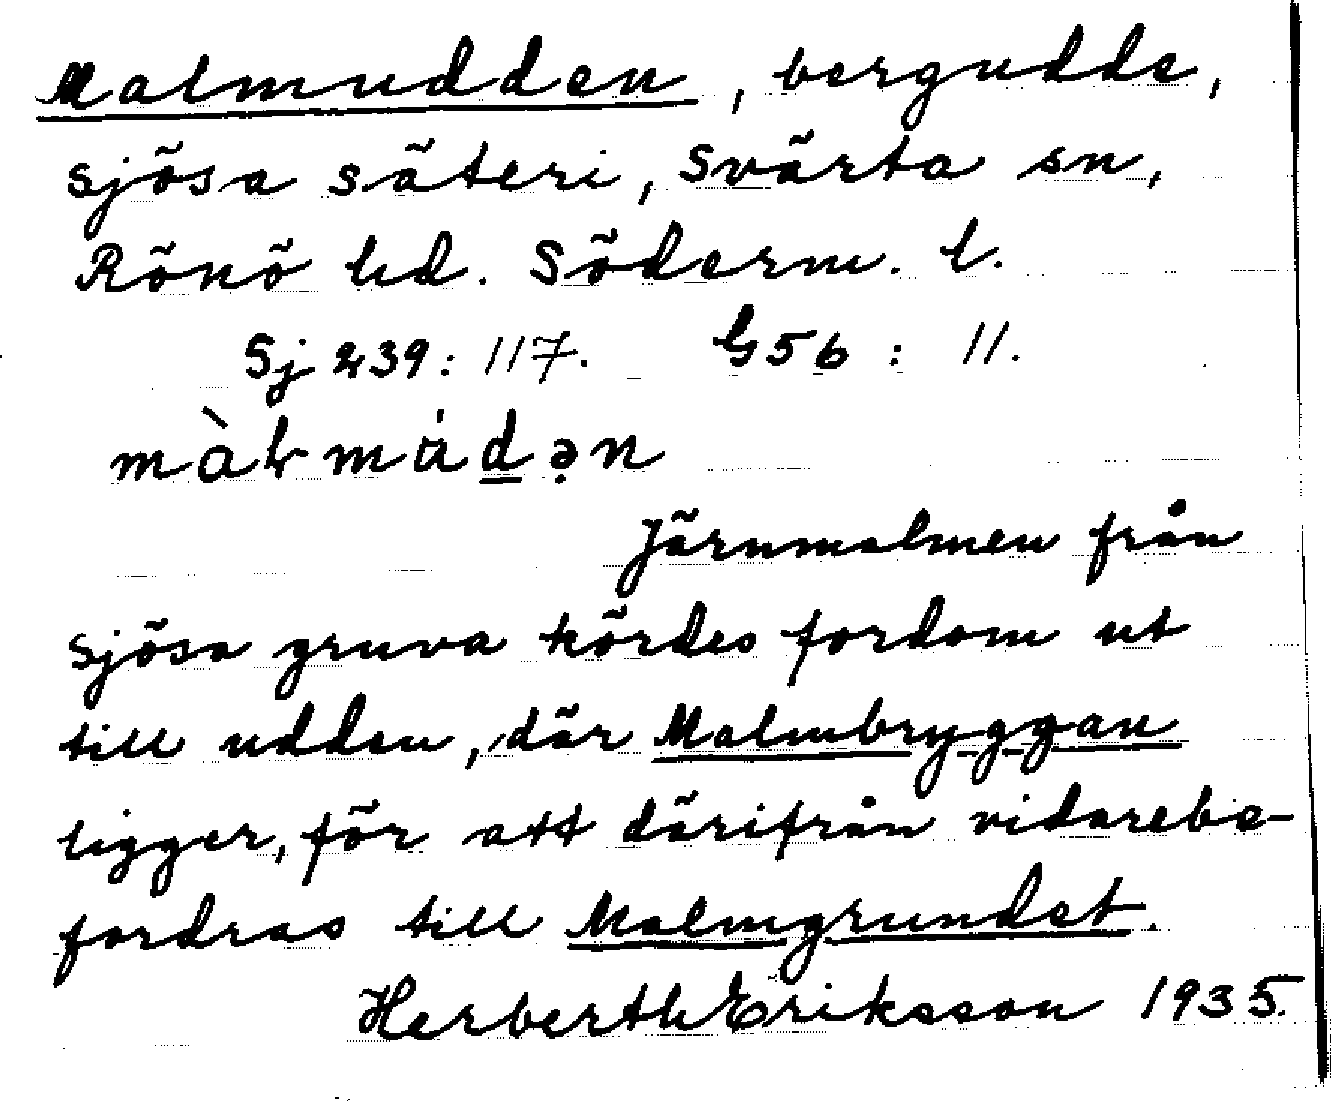 Malmudden, bergudde,
Sjösa säteri, Svärta sn,
Rönö hd. Söderm. l.
Sj 239: 117. G56 : 11.
Järnmalmen från
Sjösa gruva kördes fordom ut
till udden, där Malmbryggan
ligger, för att därifrån vidarebe-
fordras till Malmgrundet.
Herberth Eriksson 1935.